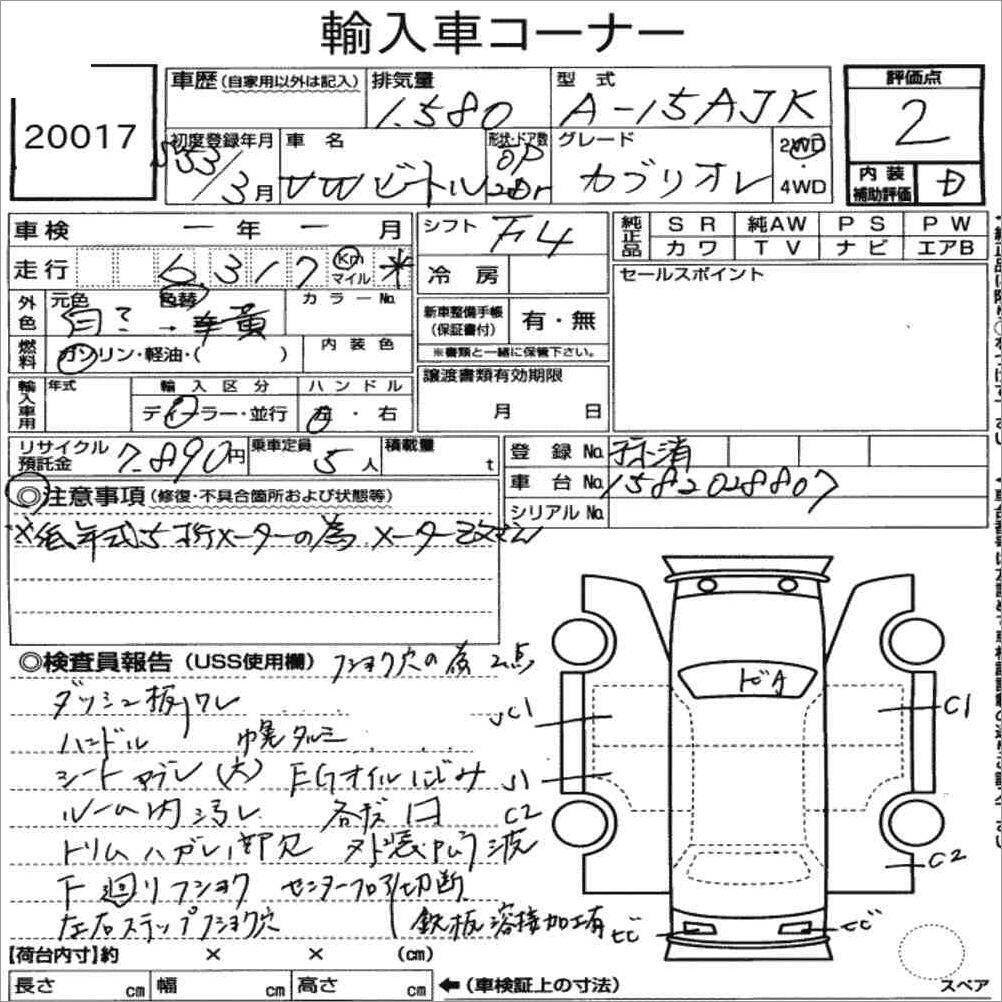 輸入車コーナー
20017
車歴(自家用以外は記入) 排気量 型式 評価点
1.580 A-15AJK 2
初度登録年月 車名 形状・ドア数 グレード 2WD
S53/3月 VW ビートル OP 2Dr カブリオレ ・ 4WD
内装補助評価 D
車検 ー年ー月 シフト F4 純正品 SR 純AW PS PW
カワ TV ナビ エアB
走行 6,317 Km マイル * 冷房 セールスポイント
外色 元色 色替 カラーNo. 新車整備手帳(保証書付) 有・無
白? → 黄 ※書類と一緒に保管下さい。
燃料 ガソリン・軽油・( ) 内装色 譲渡書類有効期限
輸入車用 年式 輸入区分 ハンドル 月 日
ディーラー・並行 左・右
リサイクル預託金 7,890円 乗車定員 5人 積載量 t 登録No. 抹消
車台No. 1582028807
シリアルNo.
◎注意事項(修復・不具合箇所および状態等)
※低年式5桁メーターの為 メーター改ざん
◎検査員報告(USS使用欄) フショク穴の為2点
ダッシュ板ワレ
ハンドル 幌タルミ
シートヤブレ(大) EGオイルにじみ
ルーム内汚レ 各キズ凹
トリムハガレ、部欠 外装ムラ波
下廻りフショク センターフロア切断
左右ステップフショク穴 鉄板溶接加工有
ドタ
C1
C1
C2
C2
ヒビ
ヒビ
【荷台内寸】約 × × (cm)
長さ cm 幅 cm 高さ cm ←(車検証上の寸法) スペア